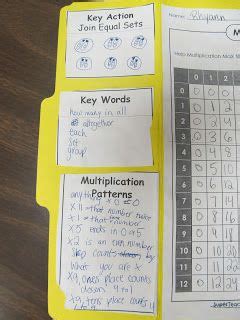 Key Action
Join Equal Sets
Key Words
how many in all
altogether
each
set
group
Multiplication
Patterns
anything x 0 = 0
x 11 that number twice
x 1 = that number
x 5 ends in 0 or 5
x 2 is an even number
Skip count by
what you are x
x 9, ones place counts
down 9 to 1
x 9, tens place counts
Name: Rhyann
Help Multiplication Max
0 1 2
0 0 0 0
1 0 1 2
2 0 2 4
3 0 3 6
4 0 4 8
5 0 5 10
6 0 6 12
7 0 7 14
8 0 8 16
9 0 9 18
10 0 10 20
11 0 11 22
12 0 12 24